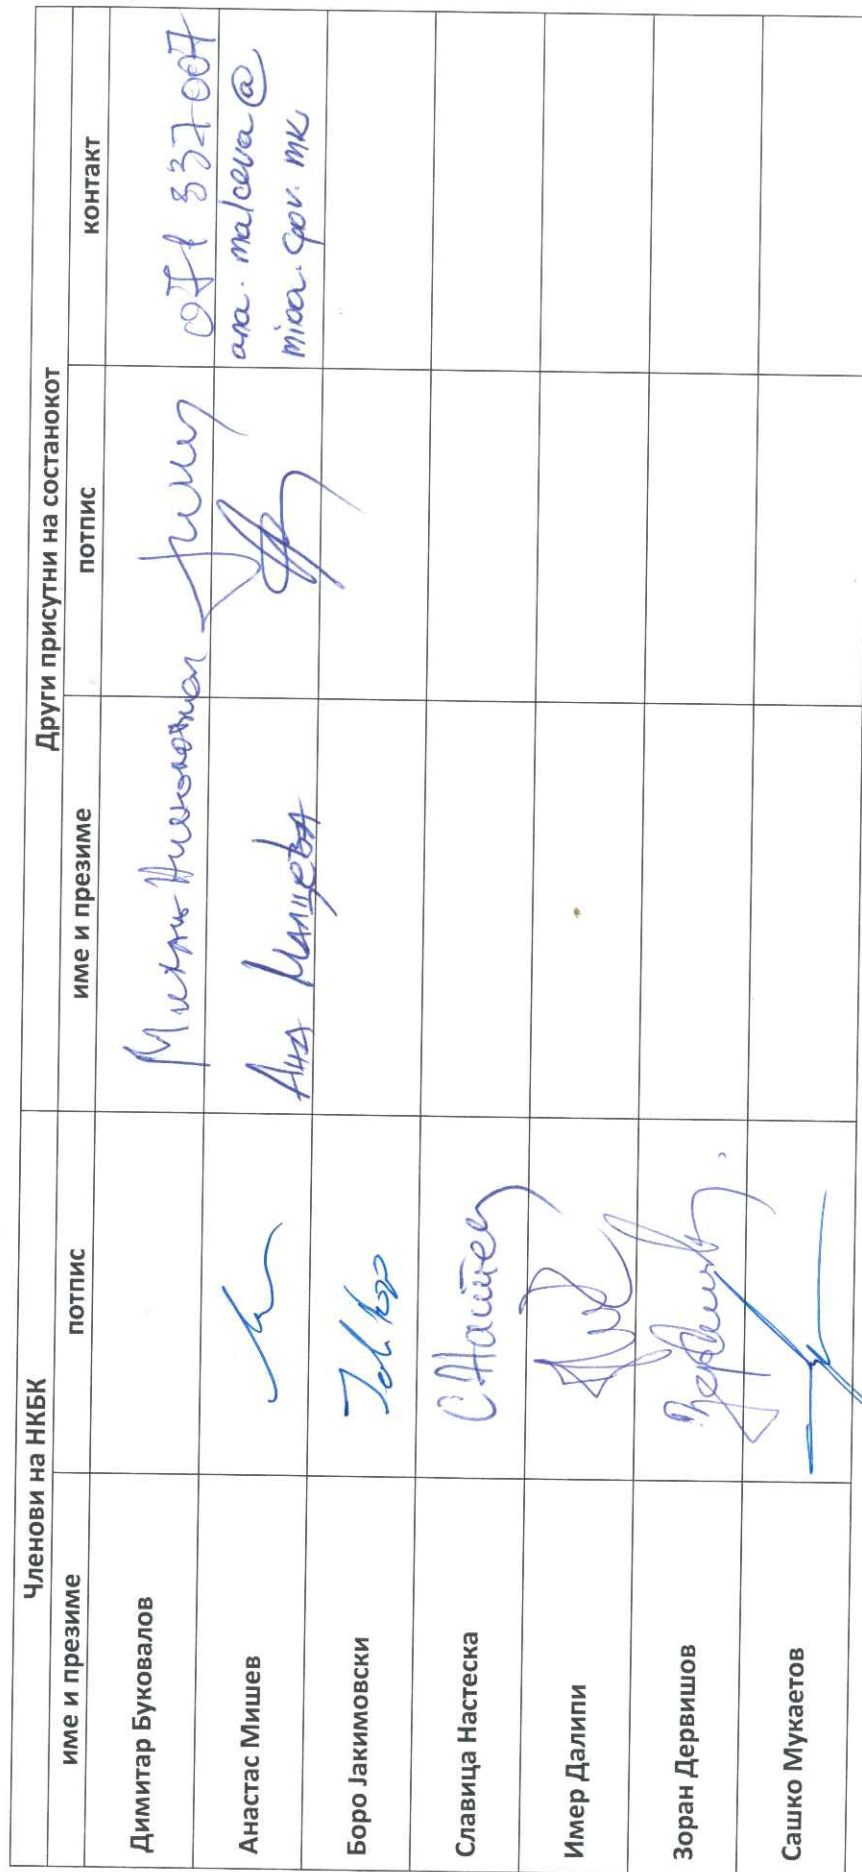 Членови на НКБК
Други присутни на состанокот
име и презиме потпис име и презиме потпис контакт
Димитар Буковалов
071 337 007
Анастас Мишев Ана Малцева ana.malceva@
mioa.gov.mk
Боро Јакимовски
Славица Настеска
Имер Далипи
Зоран Дервишов
Сашко Мукаетов